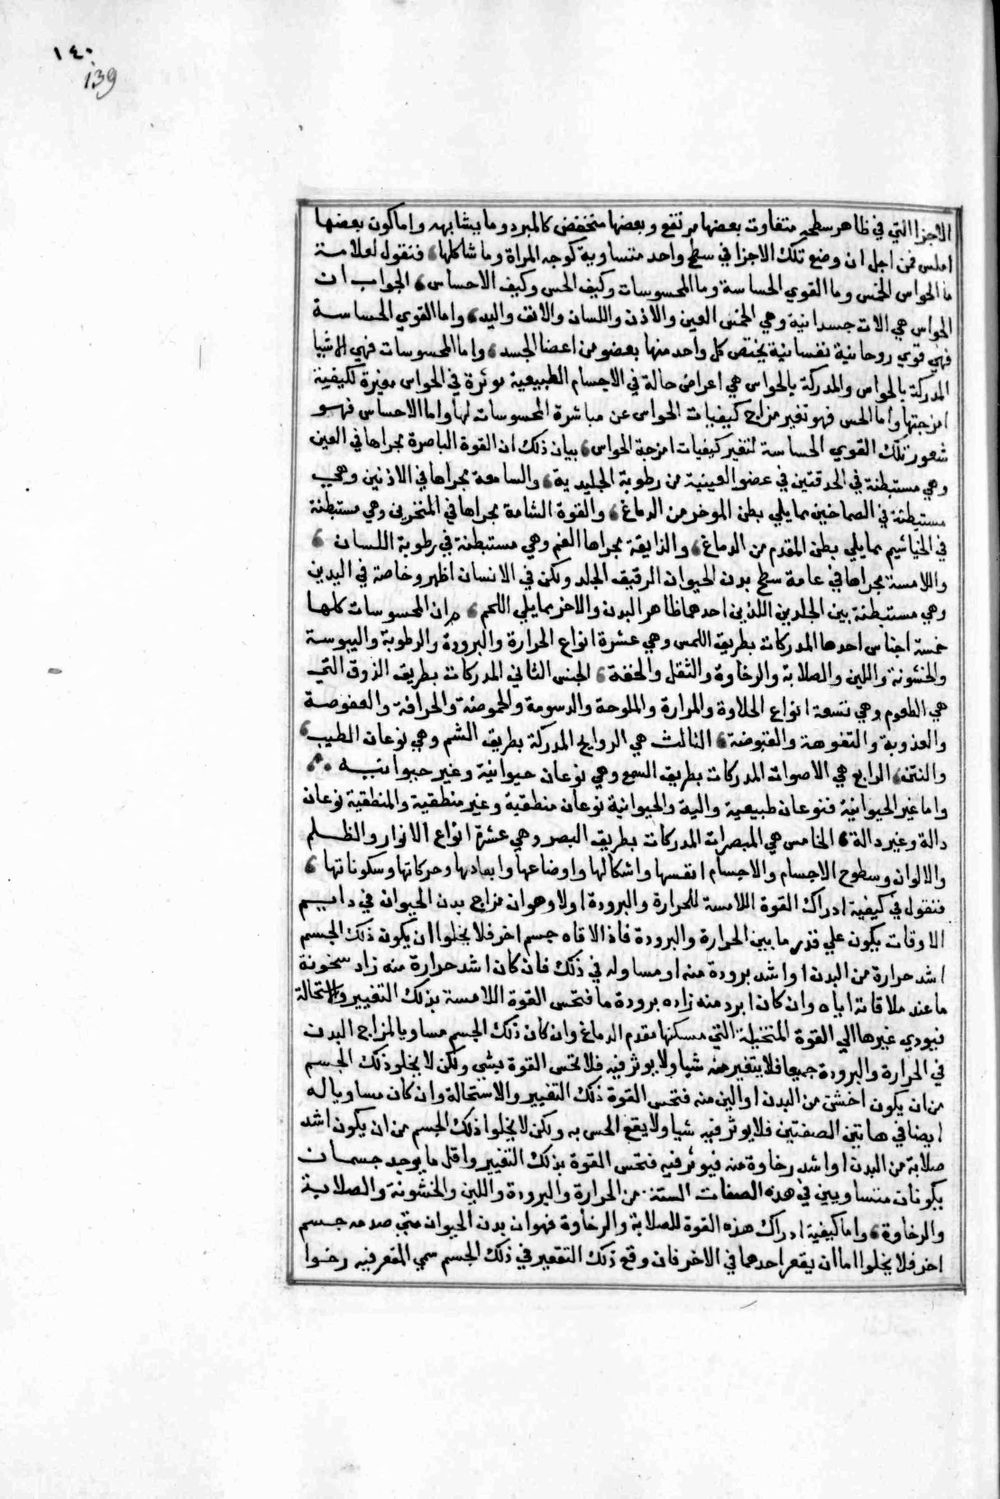 ١٤٠
139
الاجزا التي في ظاهر سطحه متفاوت بعضها مرتفع وبعضها منخفض كالمبرد وما يشابهه واما كون بعضها
املس فمن اجل ان وضع تلك الاجزا في سطح واحد متساوية كوجه المراة وما شاكلها، فنقول لعلامة
ما الحواس الخمس وما القوي الحساسة وما المحسوسات وكيف الحس وكيف الاحساس، الجواب ان
الحواس هي الات جسدانية وهي الخمس العين والاذن واللسان والانف واليد، واما القوي الحساسة
فهي قوي روحانية نفسانية يختص كل واحد منها بعضو من اعضا الجسد، واما المحسوسات فهي الاشيا
المدركة بالحواس والمدركة بالحواس هي اعراض حالة في الاجسام الطبيعية موثرة في الحواس مغيرة لكيفية
امزجتها واما الحس فهو تغير مزاج كيفيات الحواس عن مباشرة المحسوسات لها واما الاحساس فهو
شعور تلك القوي الحساسة لتغير كيفيات امزجة الحواس، بيان ذلك ان القوة الباصرة مجراها في العين
وهي مستبطنة في الحدقتين في عضو العينية من رطوبة الجليدية، والسامعة مجراها في الاذنين وهي
مستبطنة في الصماخين مما يلي بطن الموخر من الدماغ، والقوة الشامة مجراها في المنخرين وهي مستبطنة
في الخياشيم مما يلي بطن المقدم من الدماغ، والذايقة مجراها الفم وهي مستبطنة في رطوبة اللسان،
واللامسة مجراها في عامة سطح بدن الحيوان الرقيق الجلد ولكن في الانسان اظهر وخاصة في اليدين
وهي مستبطنة بين الجلدين اللذين احدهما ظاهر البدن والاخر مما يلي اللحم، ثم ان المحسوسات كلها
خمسة اجناس احدها المدركات بطريق اللمس وهي عشرة انواع الحرارة والبرودة والرطوبة واليبوسة
والخشونة واللين والصلابة والرخاوة والثقل والخفة، الجنس الثاني المدركات بطريق الذوق التي
هي الطعوم وهي تسعة انواع الحلاوة والمرارة والملوحة والدسومة والحموضة والحرافة والعفوصة
والعذوبة والتفوهة والقبوضة، الثالث هي الروايح المدركة بطريق الشم وهي نوعان الطيب،
والنتن، الرابع هي الاصوات المدركات بطريق السمع وهي نوعان حيوانية وغير حيوانيه
واما غير الحيوانية فنوعان طبيعية والية والحيوانية نوعان منطقية وغير منطقية والمنطقية نوعان
دالة وغير دالة، الخامس هي المبصرات المدركات بطريق البصر وهي عشرة انواع الانوار والظلم
والالوان وسطوح الاجسام والاجسام انفسها واشكالها واوضاعها وابعادها وحركاتها وسكوناتها،
فنقول في كيفية ادراك القوة اللامسة للحرارة والبرودة اولا وهو ان مزاج بدن الحيوان في دايم
الاوقات يكون علي قدر ما بين الحرارة والبرودة فاذ الاقاه جسم اخر فلا يخلوا ان يكون ذلك الجسم
اشد حرارة من البدن او اشد برودة منه او مساو له في ذلك فان كان اشد حرارة منه زاد سخونة
ما عند ملاقاته اياه وان كان ابرد منه زاده برودة ما فتحس القوة اللامسة بذلك التغيير والاستحالة
فيودي غيرها الي القوة المتخيلة التي مسكنها مقدم الدماغ وان كان ذلك الجسم مساويا لمزاج البدن
في الحرارة والبرودة جميعا فلا يتغير منه شيا ولا يوثر فيه فلا تحس القوة بشي ولكن لا يخلو ذلك الجسم
من ان يكون اخشن من البدن او الين منه فتحس القوة ذلك التغيير والاستحالة وان كان مساويا له
ايضا في هاتين الصفتين فلا يوثر فيه شيا ولا يقع الحس به ولكن لا يخلوا ذلك الجسم من ان يكون اشد
صلابة من البدن او اشد رخاوة منه فيوثر فيه فتحس القوة بذلك التغيير واقل ما يوجد جسمان
يكونان متساويين في هذه الصفات الستة من الحرارة والبرودة واللين والخشونة والصلابة
والرخاوة، واما كيفية ادراك هذه القوة للصلابة والرخاوة فهو ان بدن الحيوان متي صدمه جسم
اخر فلا يخلوا اما ان يقعر احدهما في الاخر فان وقع ذلك التقعير في ذلك الجسم سمي المقعر فيه رخوا